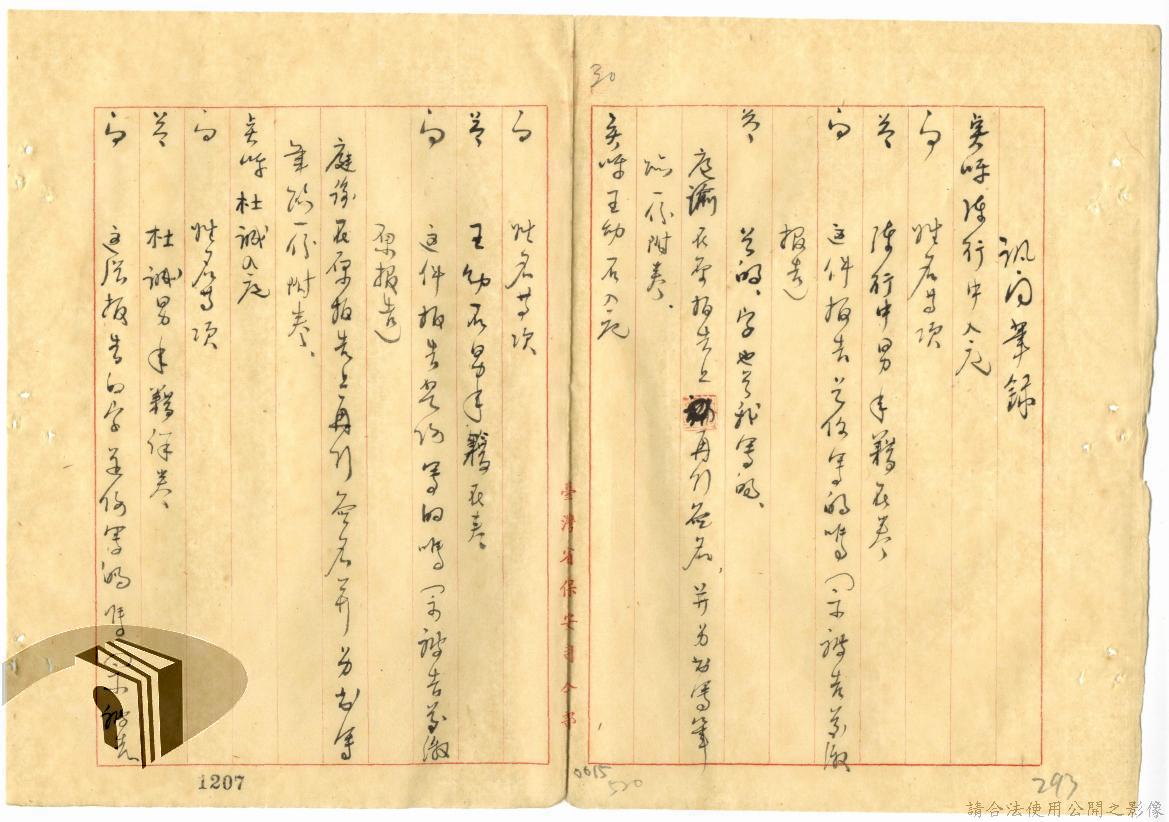 30
訊問筆錄
點呼陳行中入庭
問 姓名等項
答 陳行中男年籍在卷
問 這件報告是你寫的嗎(提示被告蒙繳
報告)
答 是的、字也是我寫的、
庭諭在原報告上再行簽名,并另書寫筆
跡一份附卷、
點呼王幼石入庭
問 姓名等項
答 王幼石男年籍在卷
問 這件報告是你寫的嗎(提示被告蒙繳
原報告)
庭諭在原報告上再行簽名并另書寫
筆跡一份附卷、
點呼杜誠入庭
問 姓名等項
答 杜誠男年籍詳卷、
問 這張報告的字是你寫的嗎 示被告
臺灣省保安司令部
1207
0015
520
293
請合法使用公開之影像